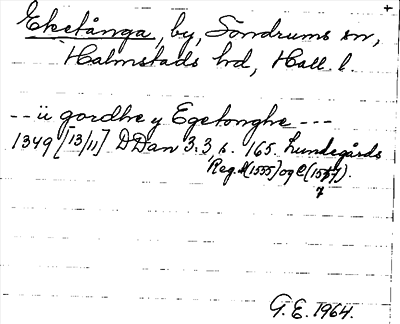 Eketånga, by, Söndrums sn,
Halmstads hd, Hall. l.
-- ii gordhe y Egetonghe ---
1349 [13/11] DDan 3.3 s. 165. Lundegårds
Reg. A(1555) og C(1557).
7
G.E. 1964.